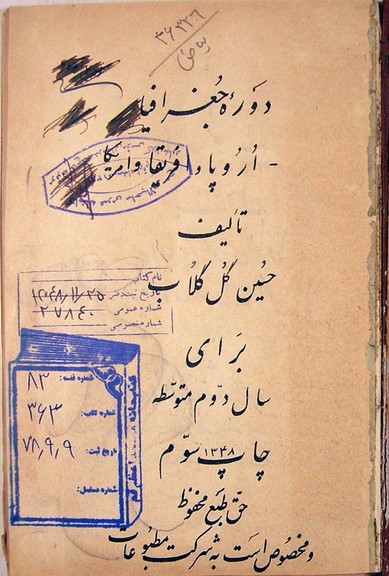 ۳۶۳۲۶
دورهٔ جغرافیا
- اروپا و افریقا و امریکا
تألیف
حسین گل گلاب
نام کتاب
تاریخ ثبت دفتر ۱۳۴۸/۱/۲۵
شماره عمومی ۲۷۸۴۰
شماره خصوصی
برای
سال دوم متوسطه
شماره قفسه: ۸۳
شماره کتاب: ۳۶۳
تاریخ ثبت: ۷۸/۹/۹
شماره مسلسل:
چاپ سوم ۱۳۴۸
حق طبع محفوظ
و مخصوص است به شرکت مطبوعات